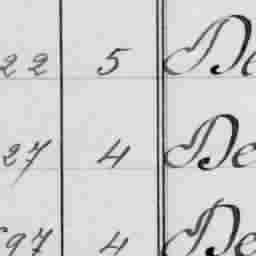 22 5 De
27 4 De
97 4 De